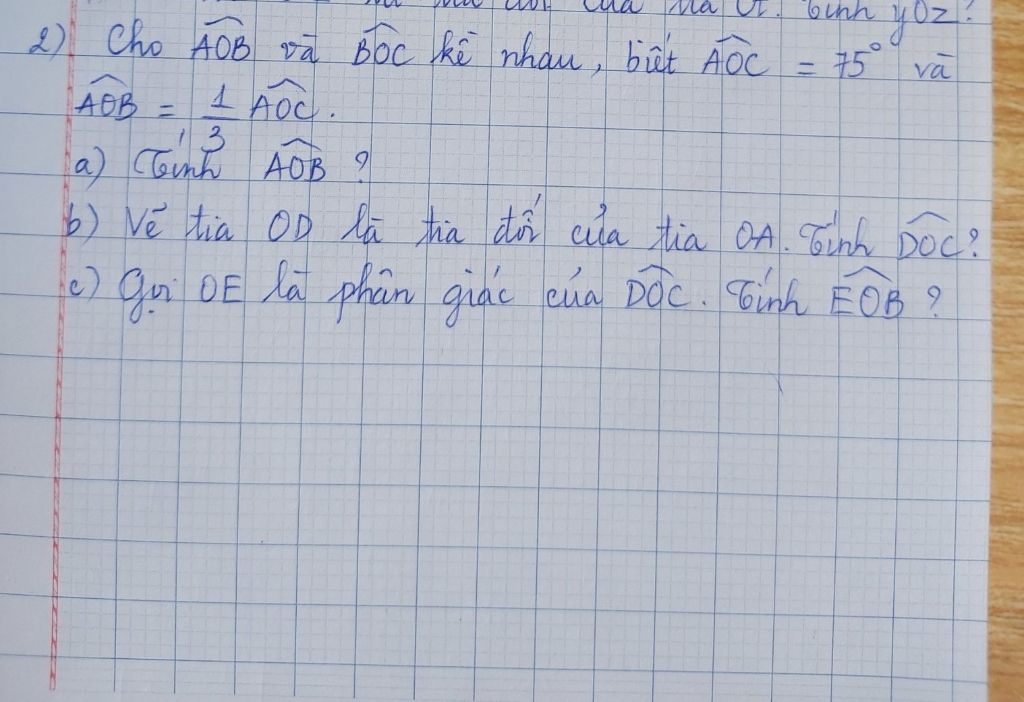 của tia Ot. Tính yOz?
2) Cho AOB và BOC kề nhau, biết AOC = 75° và
AOB = 1/3 AOC.
a) Tính AOB ?
b) Vẽ tia OD là tia đối của tia OA. Tính DOC?
c) Gọi OE là phân giác của DOC. Tính EOB ?